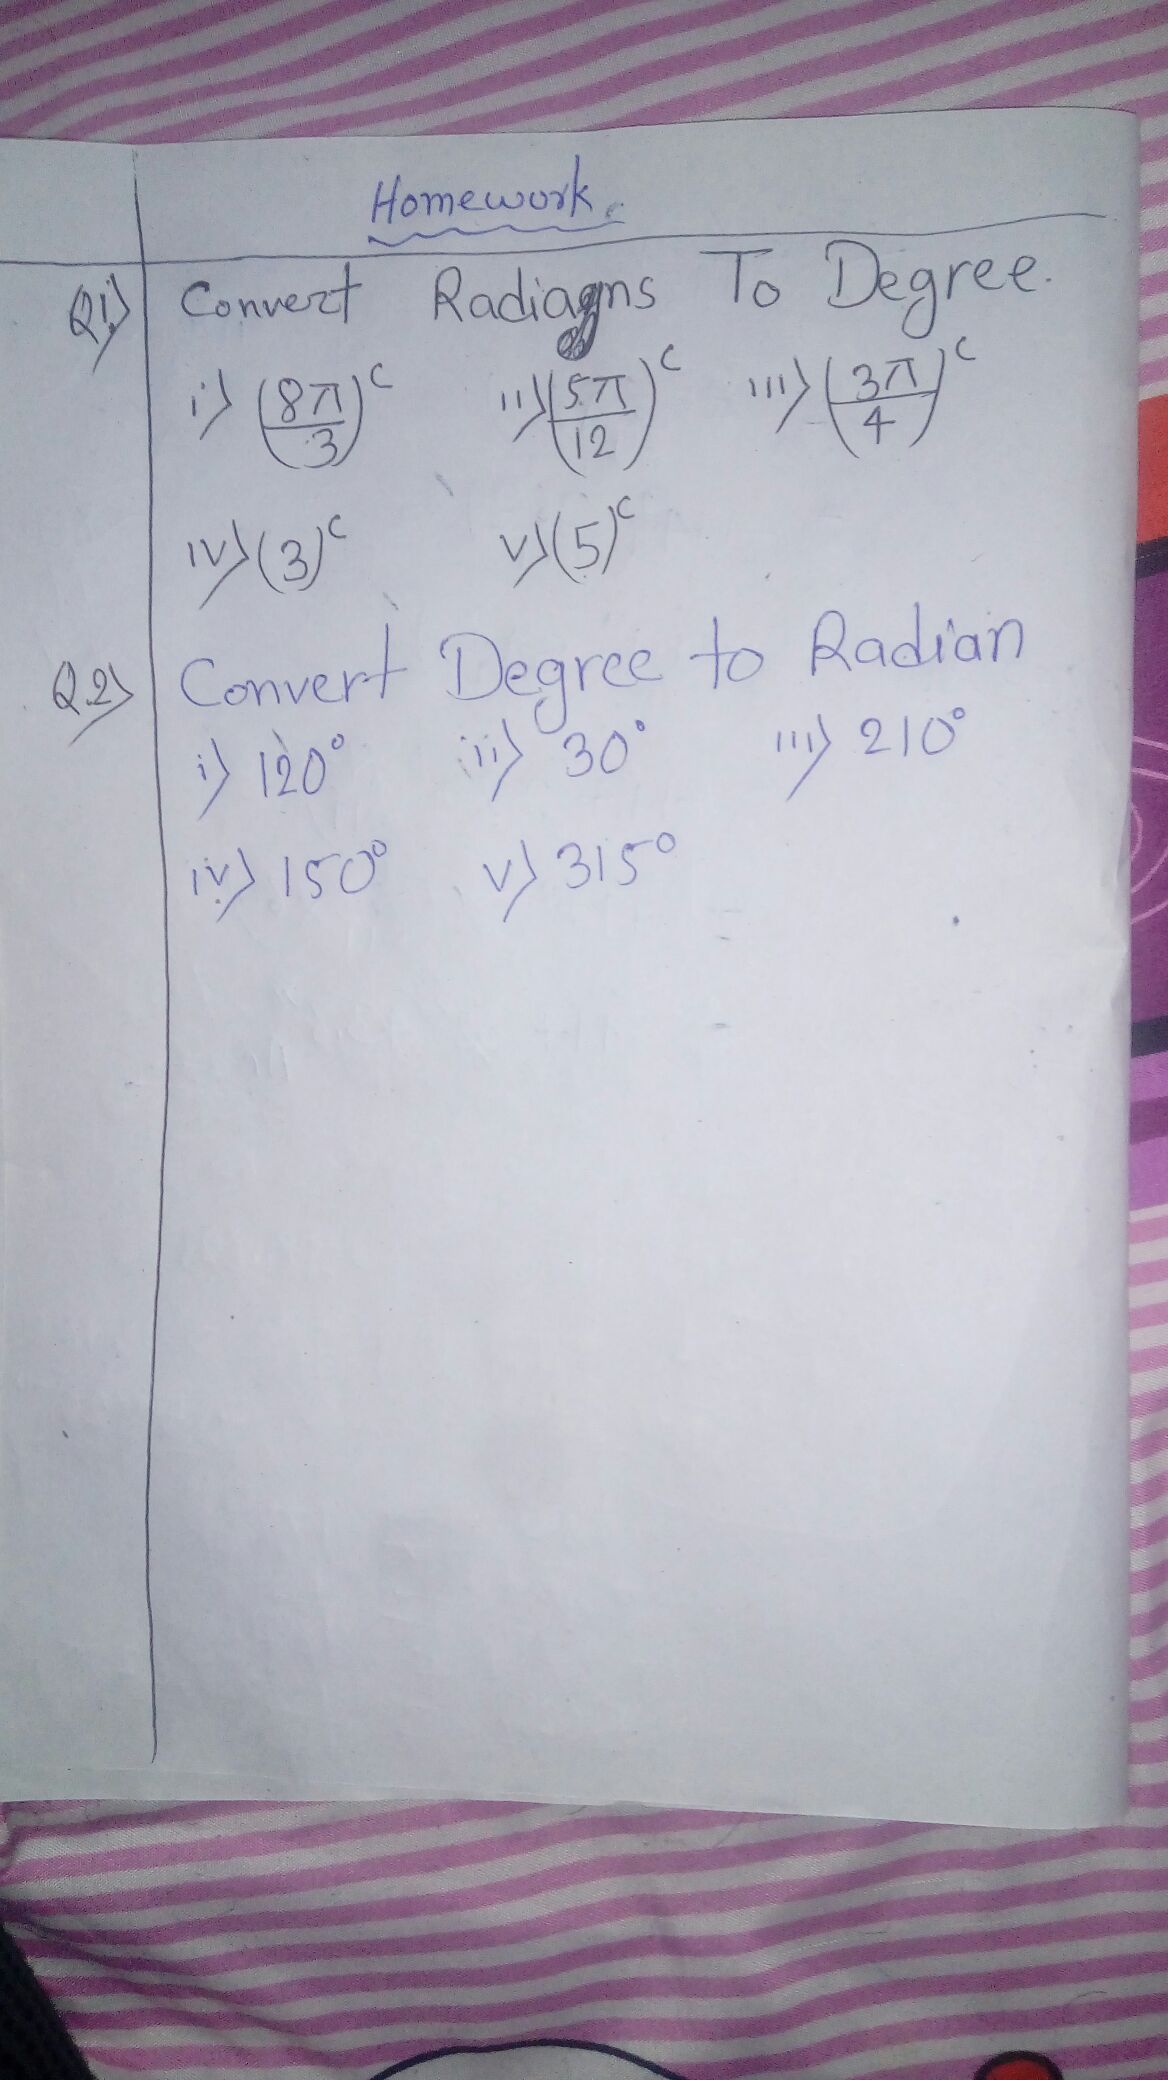 Homework.
Q1) Convert Radians To Degree.
i) (8π/3)^c ii) (5π/12)^c iii) (3π/4)^c
iv) (3)^c v) (5)^c
Q.2) Convert Degree to Radian
i) 120° ii) 30° iii) 210°
iv) 150° v) 315°